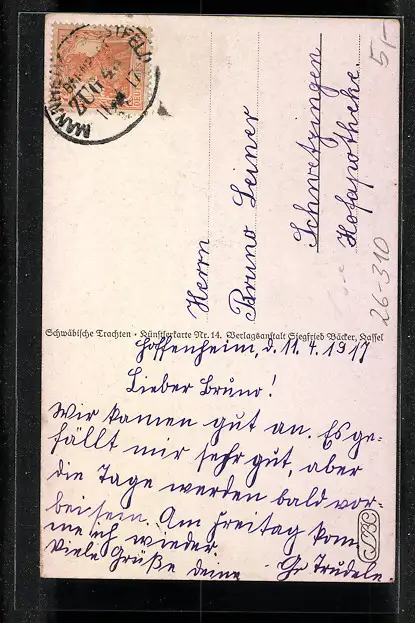 MANNHEIM
ZUG
5/-
26-310
Herrn
Bruno Leiner
Schwetzingen
Hofapotheke.
Schwäbische Trachten • Künstlerkarte Nr. 14. Verlagsanstalt Siegfried Bäcker, Kassel
Hoffenheim, d. 11.4.1917
Lieber Bruno!
Wir kamen gut an. Es ge-
fällt mir sehr gut, aber
die Tage werden bald vor-
bei sein. Am Freitag kom
me ich wieder.
Viele Grüße deine Trudele.